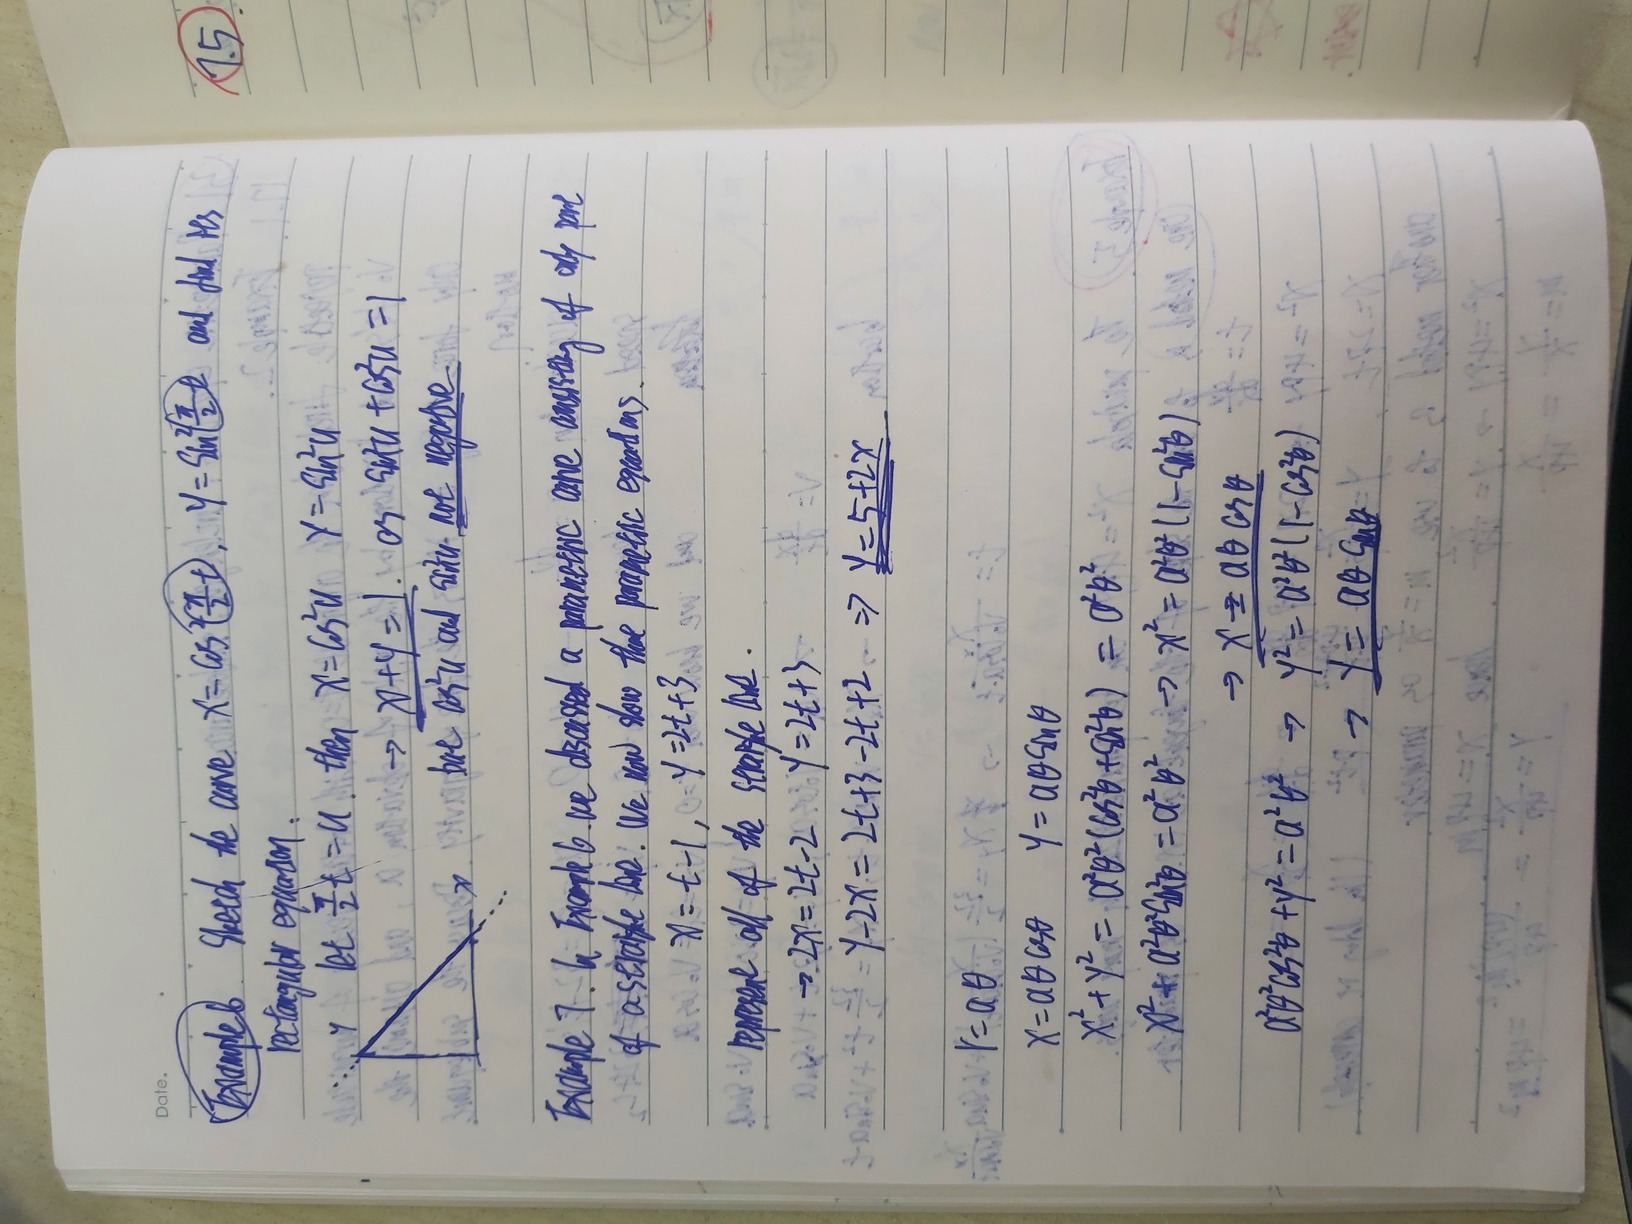 Date.
Example 6 Sketch the curve x = cos² π/2 t, y = sin² π/2 t and find its
7.5
rectangular equation.
y let π/2 t = u. then x = cos²u y = sin²u
→ x + y = 1. as sin²u + cos²u = 1
x but cos²u and sin²u not negative
Example 7. In Example 6 we discussed a parametric curve consisting of only part
of a straight line. We now show that parametric equations.
x = t - 1, y = 2t + 3
represent all of the straight line.
→ 2x = 2t - 2 y = 2t + 3
y - 2x = 2t + 3 - 2t + 2 ⇒ y = 5 + 2x
r = aθ
x = aθ cosθ y = aθ sinθ
x² + y² = a²θ² (cos²θ + sin²θ) = a²θ²
x² + a²θ² sin²θ = a²θ² → x² = a²θ² (1 - sin²θ)
→ x = aθ cosθ
a²θ² cos²θ + y² = a²θ² → y² = a²θ² (1 - cos²θ)
→ y = aθ sinθ